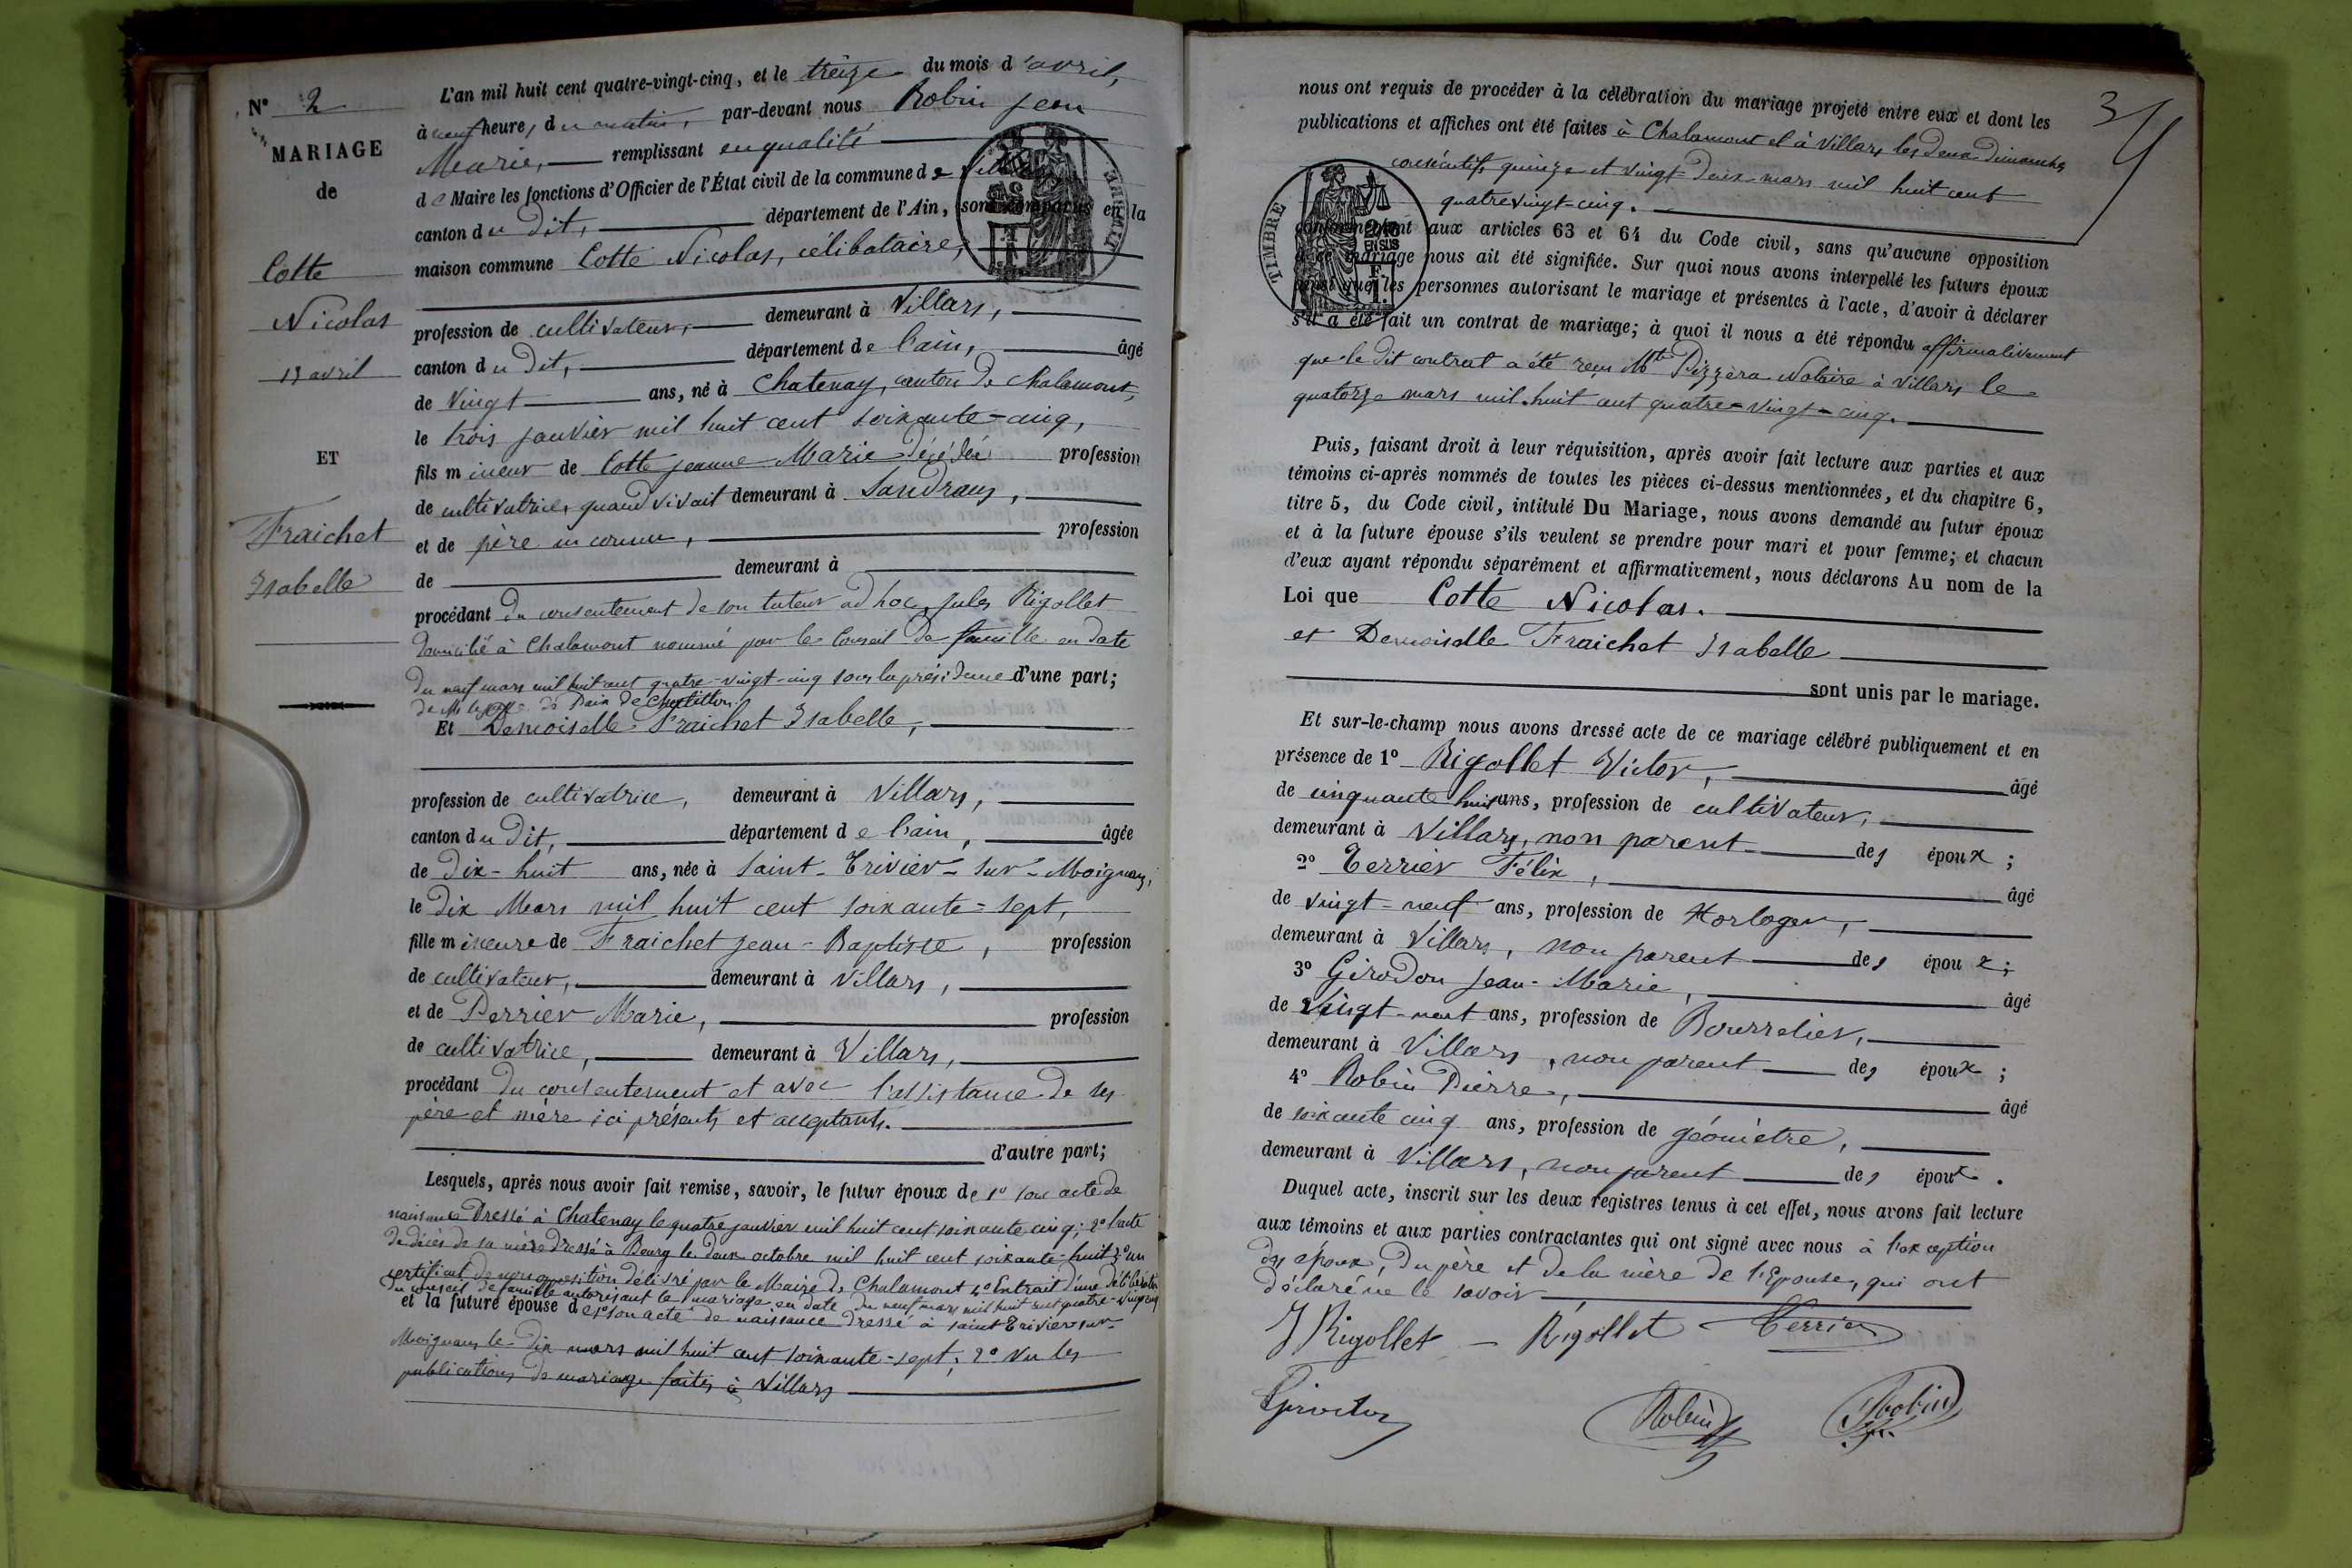 N° 2
MARIAGE
de
Cotte
Nicolas
13 avril
ET
Fraichet
Isabelle
L'an mil huit cent quatre-vingt-cinq, et le treize du mois d'avril,
à neuf heures du matin, par-devant nous Robin Jean
Marie, remplissant en qualité
de Maire les fonctions d'Officier de l'État civil de la commune de Villars
canton du dit, département de l'Ain, sont comparus en la
maison commune Cotte Nicolas, célibataire,
profession de cultivateur, demeurant à Villars,
canton du dit, département de l'ain, âgé
de vingt ans, né à Chatenay, canton de Chalamont,
le trois janvier mil huit cent soixante-cinq,
fils mineur de Cotte Jeanne Marie décédée profession
de cultivatrice, quand vivait demeurant à Sandrans,
et de père inconnu, profession
de demeurant à
procédant du consentement de son tuteur ad hoc, Jules Rigollet
domicilié à Chalamont nommé par le Conseil de famille en date
du neuf mars mil huit cent quatre-vingt-cinq sous la présidence d'une part;
de Mr le de Paix de Chatillon.
Et Demoiselle Fraichet Isabelle,
profession de cultivatrice, demeurant à Villars,
canton du dit, département de l'ain, âgée
de Dix-huit ans, née à Saint-Trivier-sur-Moignans,
le Dix Mars mil huit cent soixante-sept,
fille mineure de Fraichet Jean-Baptiste, profession
de cultivateur, demeurant à Villars,
et de Perrier Marie, profession
de cultivatrice, demeurant à Villars,
procédant du consentement et avec l'assistance de ses
père et mère ici présents et acceptants.
d'autre part;
Lesquels, après nous avoir fait remise, savoir, le futur époux de 1° son acte de
naissance dressé à Chatenay le quatre janvier mil huit cent soixante cinq; 2° l'acte
de décès de sa mère dressé à Bourg le deux octobre mil huit cent soixante-huit 3° un
certificat de non opposition délivré par le Maire de Chalamont 4° Extrait d'une délibération
du conseil de famille autorisant le mariage en date du neuf mars mil huit cent quatre-vingt cinq
et la future épouse de 1° son acte de naissance dressé à Saint Trivier sur
Moignans le dix mars mil huit cent soixante-sept; 2° Vu les
publications de mariage faites à Villars
3
nous ont requis de procéder à la célébration du mariage projeté entre eux et dont les
publications et affiches ont été faites à Chalamont et à Villars les deux Dimanches
consécutifs quinze et vingt-deux mars mil huit cent
quatre vingt-cinq.
conformément aux articles 63 et 64 du Code civil, sans qu'aucune opposition
à ce mariage nous ait été signifiée. Sur quoi nous avons interpellé les futurs époux
ainsi que les personnes autorisant le mariage et présentes à l'acte, d'avoir à déclarer
s'il a été fait un contrat de mariage; à quoi il nous a été répondu affirmativement
que le dit contrat a été reçu Mtre Pizzera Notaire à Villars le
quatorze mars mil huit cent quatre-vingt-cinq.
TIMBRE
2/10
EN SUS
Puis, faisant droit à leur réquisition, après avoir fait lecture aux parties et aux
témoins ci-après nommés de toutes les pièces ci-dessus mentionnées, et du chapitre 6,
titre 5, du Code civil, intitulé Du Mariage, nous avons demandé au futur époux
et à la future épouse s'ils veulent se prendre pour mari et pour femme; et chacun
d'eux ayant répondu séparément et affirmativement, nous déclarons Au nom de la
Loi que Cotte Nicolas.
et Demoiselle Fraichet Isabelle
sont unis par le mariage.
Et sur-le-champ nous avons dressé acte de ce mariage célébré publiquement et en
présence de 1° Rigollet Victor, âgé
de cinquante huit ans, profession de cultivateur,
demeurant à Villars, non parent des époux;
2° Terrier Félix, âgé
de vingt-neuf ans, profession de Horloger,
demeurant à Villars, non parent des époux;
3° Girodon Jean-Marie, âgé
de Vingt-neuf ans, profession de Bourrelier,
demeurant à Villars, non parent des époux;
4° Robin Pierre, âgé
de soixante cinq ans, profession de géomètre,
demeurant à Villars, non parent des époux.
Duquel acte, inscrit sur les deux registres tenus à cet effet, nous avons fait lecture
aux témoins et aux parties contractantes qui ont signé avec nous à l'exception
des époux, du père et de la mère de l'Epouse, qui ont
déclaré ne le savoir
J Rigollet Rigollet Terrier
Girodon Robin Robin